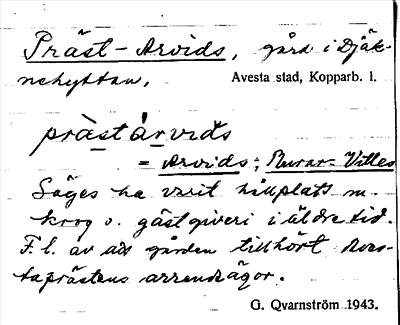 Präst-Arvids, gård i Djäk-
nehyttan, Avesta stad, Kopparb. l.
prästárvids
= Arvids; Burar-Villes
Säges ha varit hållplats m.
krog o. gästgiveri i äldre tid.
F. l. av att gården tillhört Aves-
taprästens arrendeägor.
G. Qvarnström 1943.